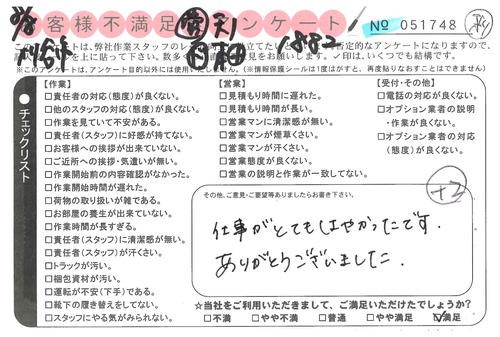 お客様不満足 アンケート № 051748
このアンケートは、弊社作業スタッフのレ
※このアンケートは、アンケート目的以外には使用いたしません。(※情報保護シールは1度はがすと、再度貼りなおすことはできません)
チェックリスト
【作業】
□責任者の対応(態度)が良くない。
□他のスタッフの対応(態度)が良くない。
□作業を見ていて不安がある。
□責任者(スタッフ)に好感が持てない。
□お客様への挨拶が出来ていない。
□ご近所への挨拶・気遣いが無い。
□作業開始前の内容確認がなかった。
□作業開始時間が遅れた。
□荷物の取り扱いが雑である。
□お部屋の養生が出来ていない。
□作業時間が長すぎる。
□責任者(スタッフ)に清潔感が無い。
□責任者(スタッフ)が汗くさい。
□トラックが汚い。
□梱包資材が汚い。
□運転が不安(下手)である。
□靴下の履き替えをしてない。
□スタッフにやる気がみられない。
【営業】
□見積もり時間に遅れた。
□見積もり時間が長い。
□営業マンに清潔感が無い。
□営業マンが煙草くさい。
□営業マンが汗くさい。
□営業態度が良くない。
□営業の説明と作業が一致してない。
【受付・その他】
□電話の対応が良くない。
□オプション業者の説明
・作業が良くない。
□オプション業者の対応
(態度)が良くない。
+2
その他、ご意見・ご要望等ありましたらお書き下さい。
仕事がとてもはやかったです.
ありがとうございました.
☆当社をご利用いただきまして、ご満足いただけたでしょうか?
□不満 □やや不満 □普通 □やや満足 ☑満足